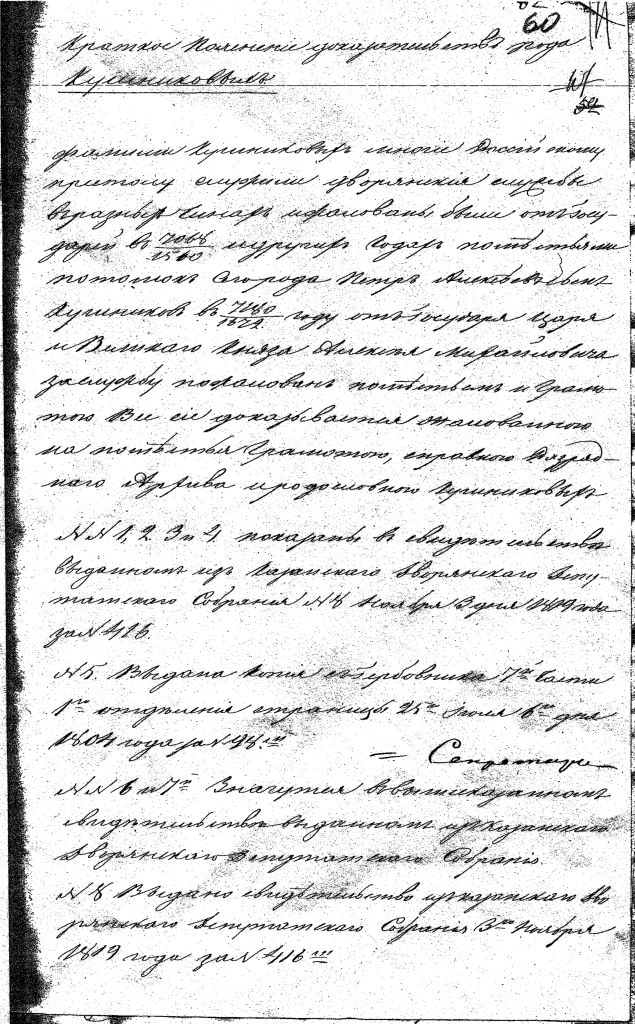 60
Краткое Пояснение доказательствъ рода
Кушниковыхъ
фамилии Кушниковыхъ многие Россійскому
престолу служили дворянскія службы
въ разныхъ Чинахъ и жалованы были отъ Госу-
дарей въ 7068/1560 и другихъ Годахъ поместьями
потомокъ Сего рода Петръ Алексеевъ сынъ
Кушниковъ въ 7180/1672 году отъ Государя Царя
и Великаго Князя Алексея Михайловича
за службу пожалованъ поместьемъ и Грамо-
тою Все сіе доказывается жалованною
на поместья Грамотою, справкою Разряд-
наго Архива и родословною Кушниковыхъ
№№ 1, 2, 3 и 4, показаны въ свидетельстве
выданномъ изъ Казанскаго Дворянскаго Депу-
татскаго Собранія № 8 Ноября 3 дня 1819 года
за № 416.
№ 5. Выдана Копія съ Гербовника 7й Части
1го отделенія страницы 25й Іюля 6го дня
1804 года за № 98.мъ
= Секретарь
№№ 6 и 7й Значутся въ вышесказанномъ
свидетельстве выданномъ изъ Казанскаго
Дворянскаго Депутатскаго Собранія.
№ 8 Выдано свидетельство изъ Казанскаго Дво
рянскаго Депутатскаго Собранія 3го Ноября
1819 года за № 416мъ